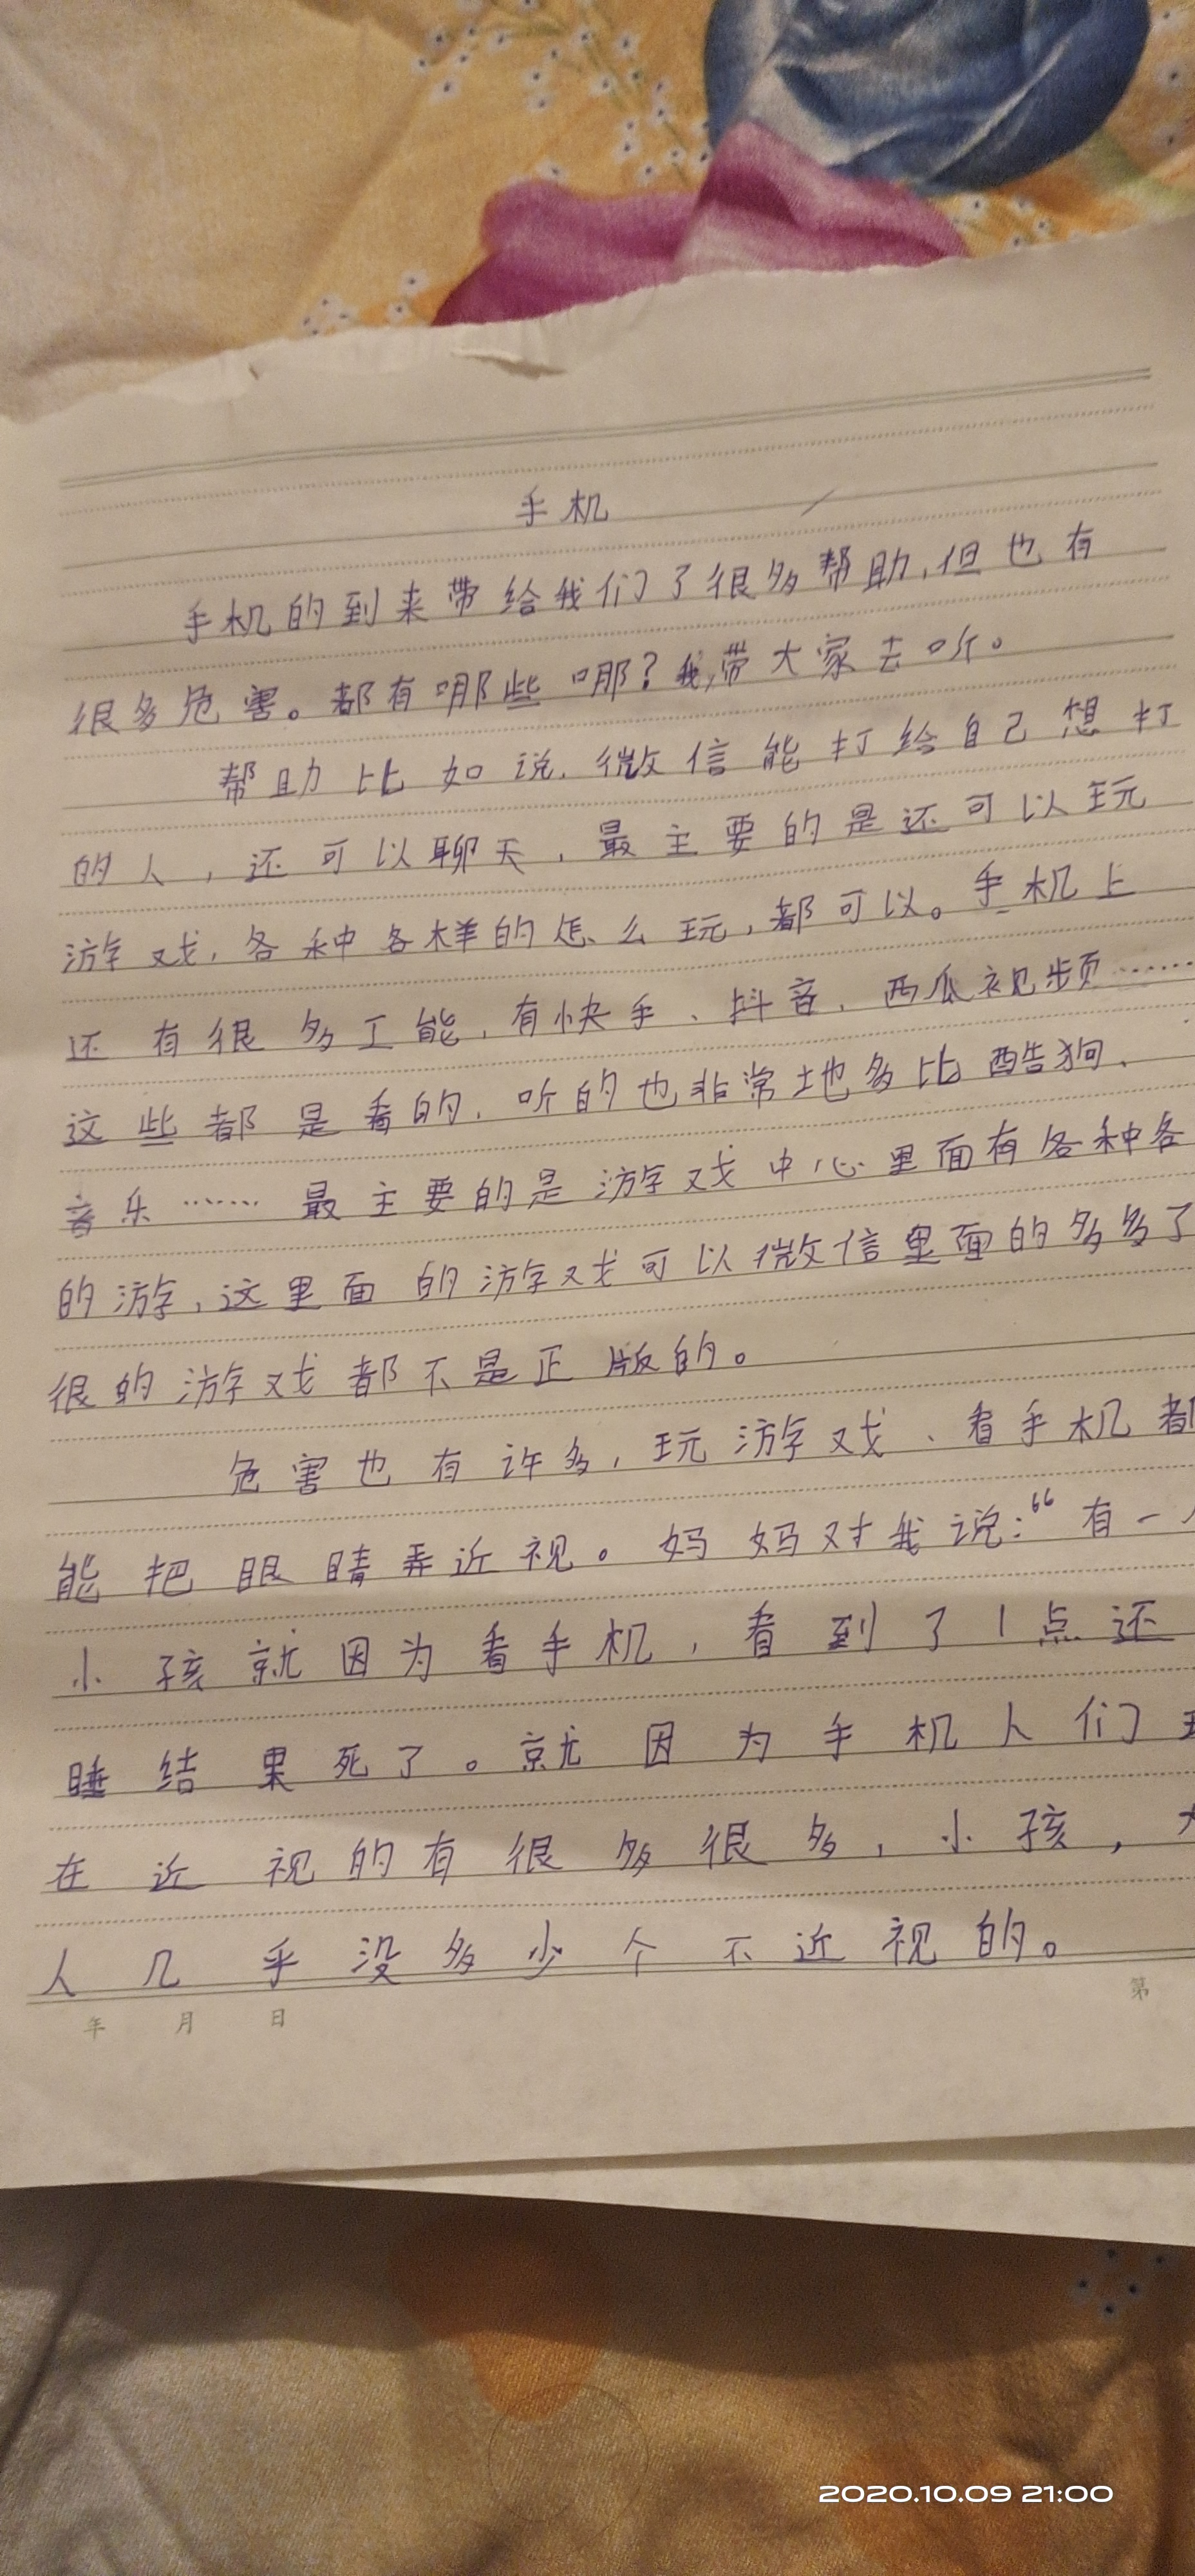 手机
手机的到来带给我们了很多帮助,但也有
很多危害。都有哪些哪?我,带大家去听。
帮助比如说,微信能打给自己想打
的人,还可以聊天,最主要的是还可以玩
游戏,各种各样的怎么玩,都可以。手机上
还有很多工能,有快手、抖音、西瓜视频……
这些都是看的,听的也非常地多比酷狗、
音乐……最主要的是游戏中心里面有各种各
的游,这里面的游戏可以微信里面的多多了
很的游戏都不是正版的。
危害也有许多,玩游戏、看手机都
能把眼睛弄近视。妈妈对我说:“有一
小孩就因为看手机,看到了1点还
睡结果死了。就因为手机人们
在近视的有很多很多,小孩,
人几乎没多少个不近视的。
年 月 日
第
2020.10.09 21:00